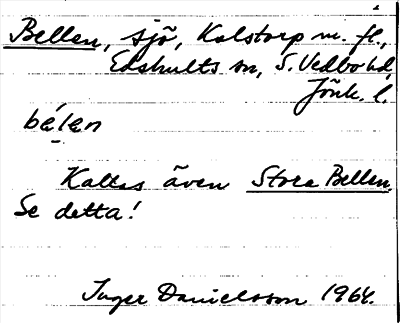 Bellen, sjö, Kolstorp m. fl.,
Edshults sn, S. Vedbo hd,
Jönk. l.
bé̠le̠n
Kallas även Stora Bellen.
Se detta!
Inger Danielsson 1964.